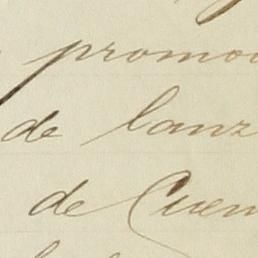 promo
de lanz
de Cuen